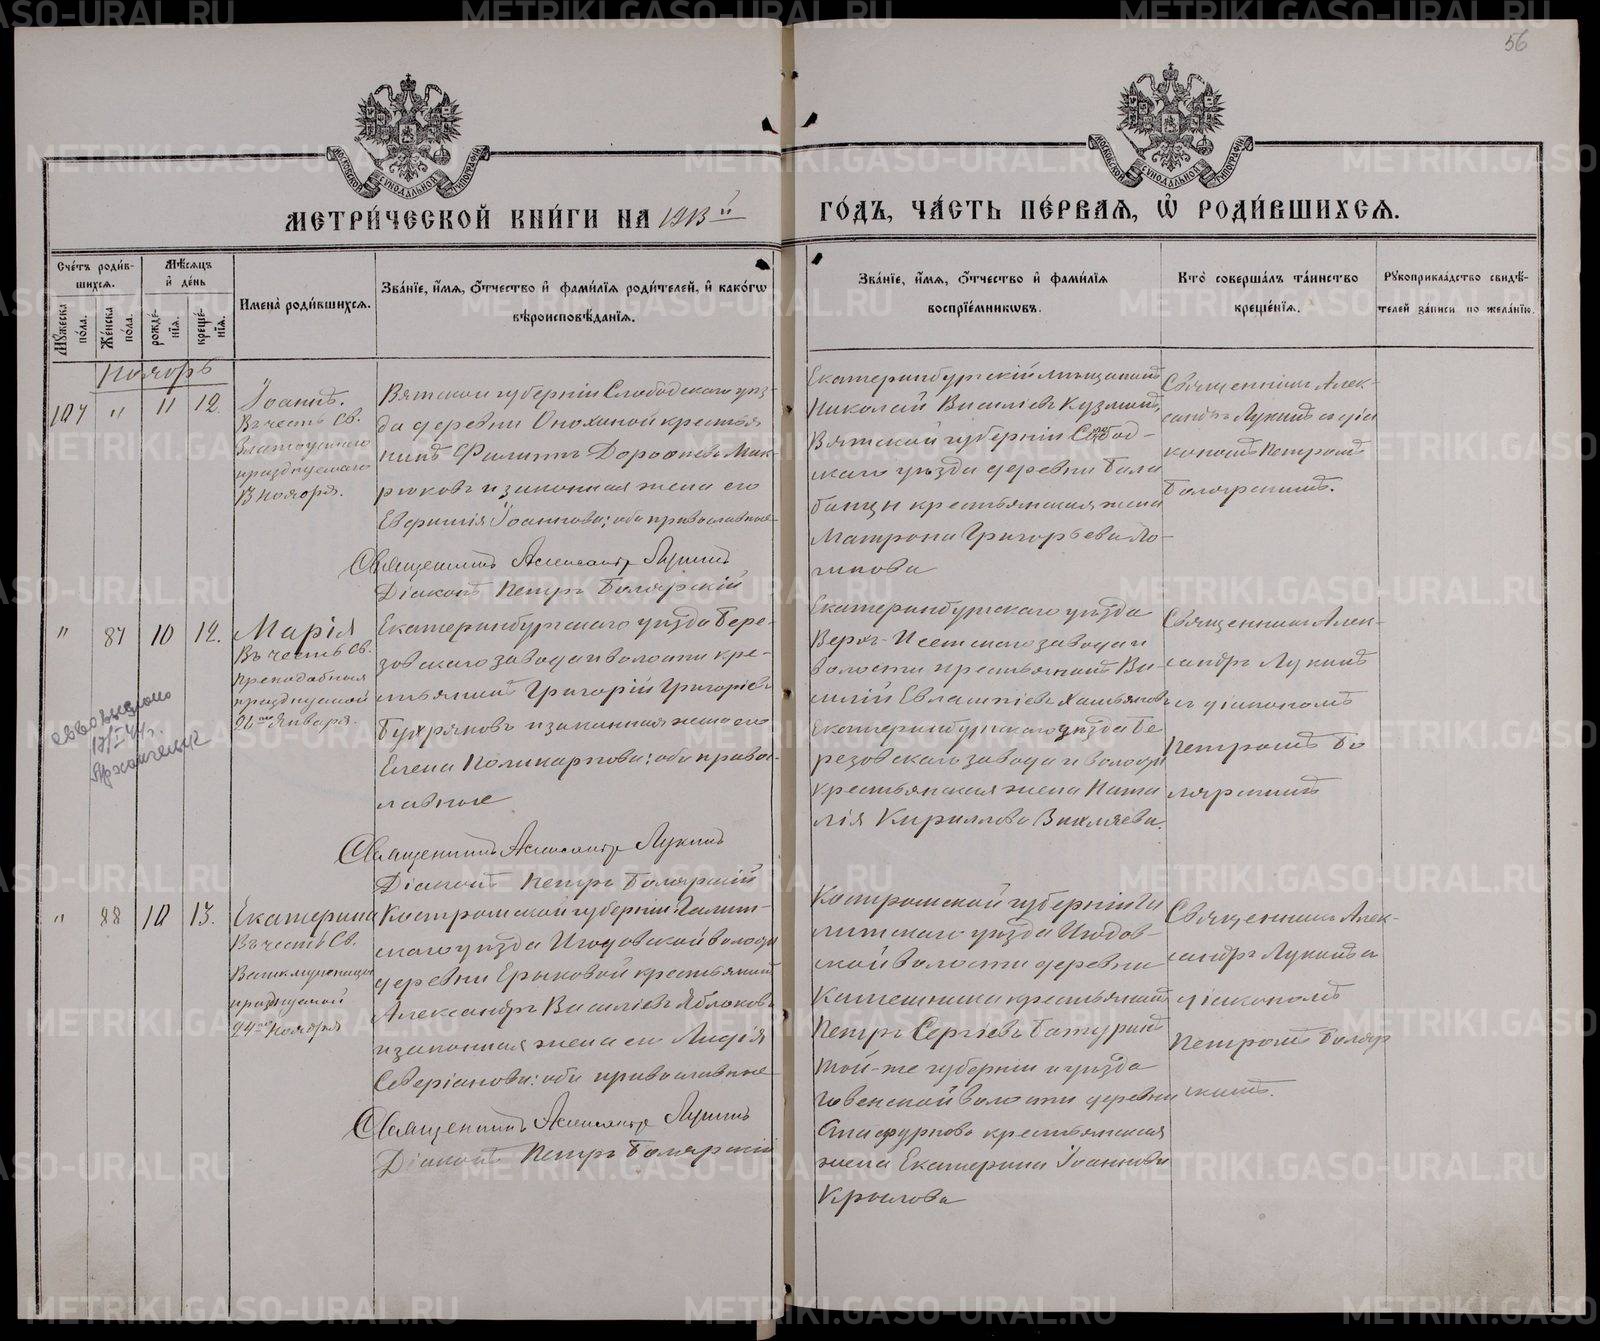 56
МЕТРИ́ЧЕСКОЙ КНИ́ГИ НА 1913й
ГО́ДЪ, ЧА́СТЬ ПЕ́РВАЯ, Ѡ҆ РОДИ́ВШИХСЯ.
Сче́тъ роди́вшихся.
Мѣ́сяцъ и҆ де́нь
Мꙋ́жеска по́ла.
Же́нска по́ла.
рожде́нїя.
креще́нїя.
Имена̀ роди́вшихся.
Зва́нїе, и҆́мя, ѻ҆́тчество и҆ фами́лїя роди́телей, и҆ како́гѡ вѣроисповѣ́данїя.
Зва́нїе, и҆́мя, ѻ҆́тчество и҆ фами́лїя воспрїе́мникѡвъ.
Кто̀ соверша́лъ та́инство креще́нїя.
Рꙋкоприкла́дство свидѣ́телей за́писи по жела́нїю.
Ноябрь
107 " 11 12.
Іоаннъ.
Въ честь Св.
Златоустаго
празднуемаго
13 ноября.
Вятской губерніи Слободского уѣз-
да деревни крестья
нинъ Филиппъ Дороѳеевъ Мак-
рюковъ и законная жена его
Іоаннова; оба православные
Священникъ Александръ Лукинъ
Діаконъ Петръ Боляр­скій
Екатеринбургскій мѣщанинъ
Николай Василіевъ Кузминъ,
Вятской губерніи Слобод-
скаго уѣзда деревни Бала
банцы крестьянская жена
Матрона Григорьева Ло-
гинова
Священникъ Алек-
сандръ Лукинъ съ діа
кономъ Петромъ
Болярскимъ.
" 87 10 12.
Марія
Въ честь Св.
преподобныя
празднуемой
26го Января.
Екатеринбургскаго уѣзда Бере-
зовскаго завода и волости кре-
стьянинъ Григорій Григоріевъ
Бухряковъ и законная жена его
Елена Поликарпова; оба право-
славные
Священникъ Александръ Лукинъ
Діаконъ Петръ Болярскій
Екатеринбургскаго уѣзда
Верхъ-Исетскаго завода и
волости крестьянинъ Ва
силій Евлампіевъ
Екатеринбургскаго уѣзда Бе
резовскаго завода и волости
крестьянская жена Ната
лія Кириллова
Священникъ Алек-
сандръ Лукинъ
съ діакономъ
Петромъ Бо
лярскимъ
17/I 41 г.
" 88 10 13.
Екатерина
Въ честь Св.
Великмученицы
празднуемой
24го Ноября
Костромской губерніи Галич-
скаго уѣзда Игодовской волости
деревни Ерыковой крестьянинъ
Александръ Василіевъ Яблоковъ
и законная жена его Лидія
Северіанова; оба православные
Священникъ Александръ Лукинъ
Діаконъ Петръ Болярскій
Костромской губерніи Га
личскаго уѣзда Игодов-
ской волости деревни
крестьянинъ
Петръ Сергіевъ Батуринъ
той-же губерніи и уѣзда
волости деревни
крестьянская
жена Екатерина Іоаннова
Крылова
Священникъ Алек-
сандръ Лукинъ съ
діакономъ
Петромъ Боляр
скимъ.
METRIKI.GASO-URAL.RU